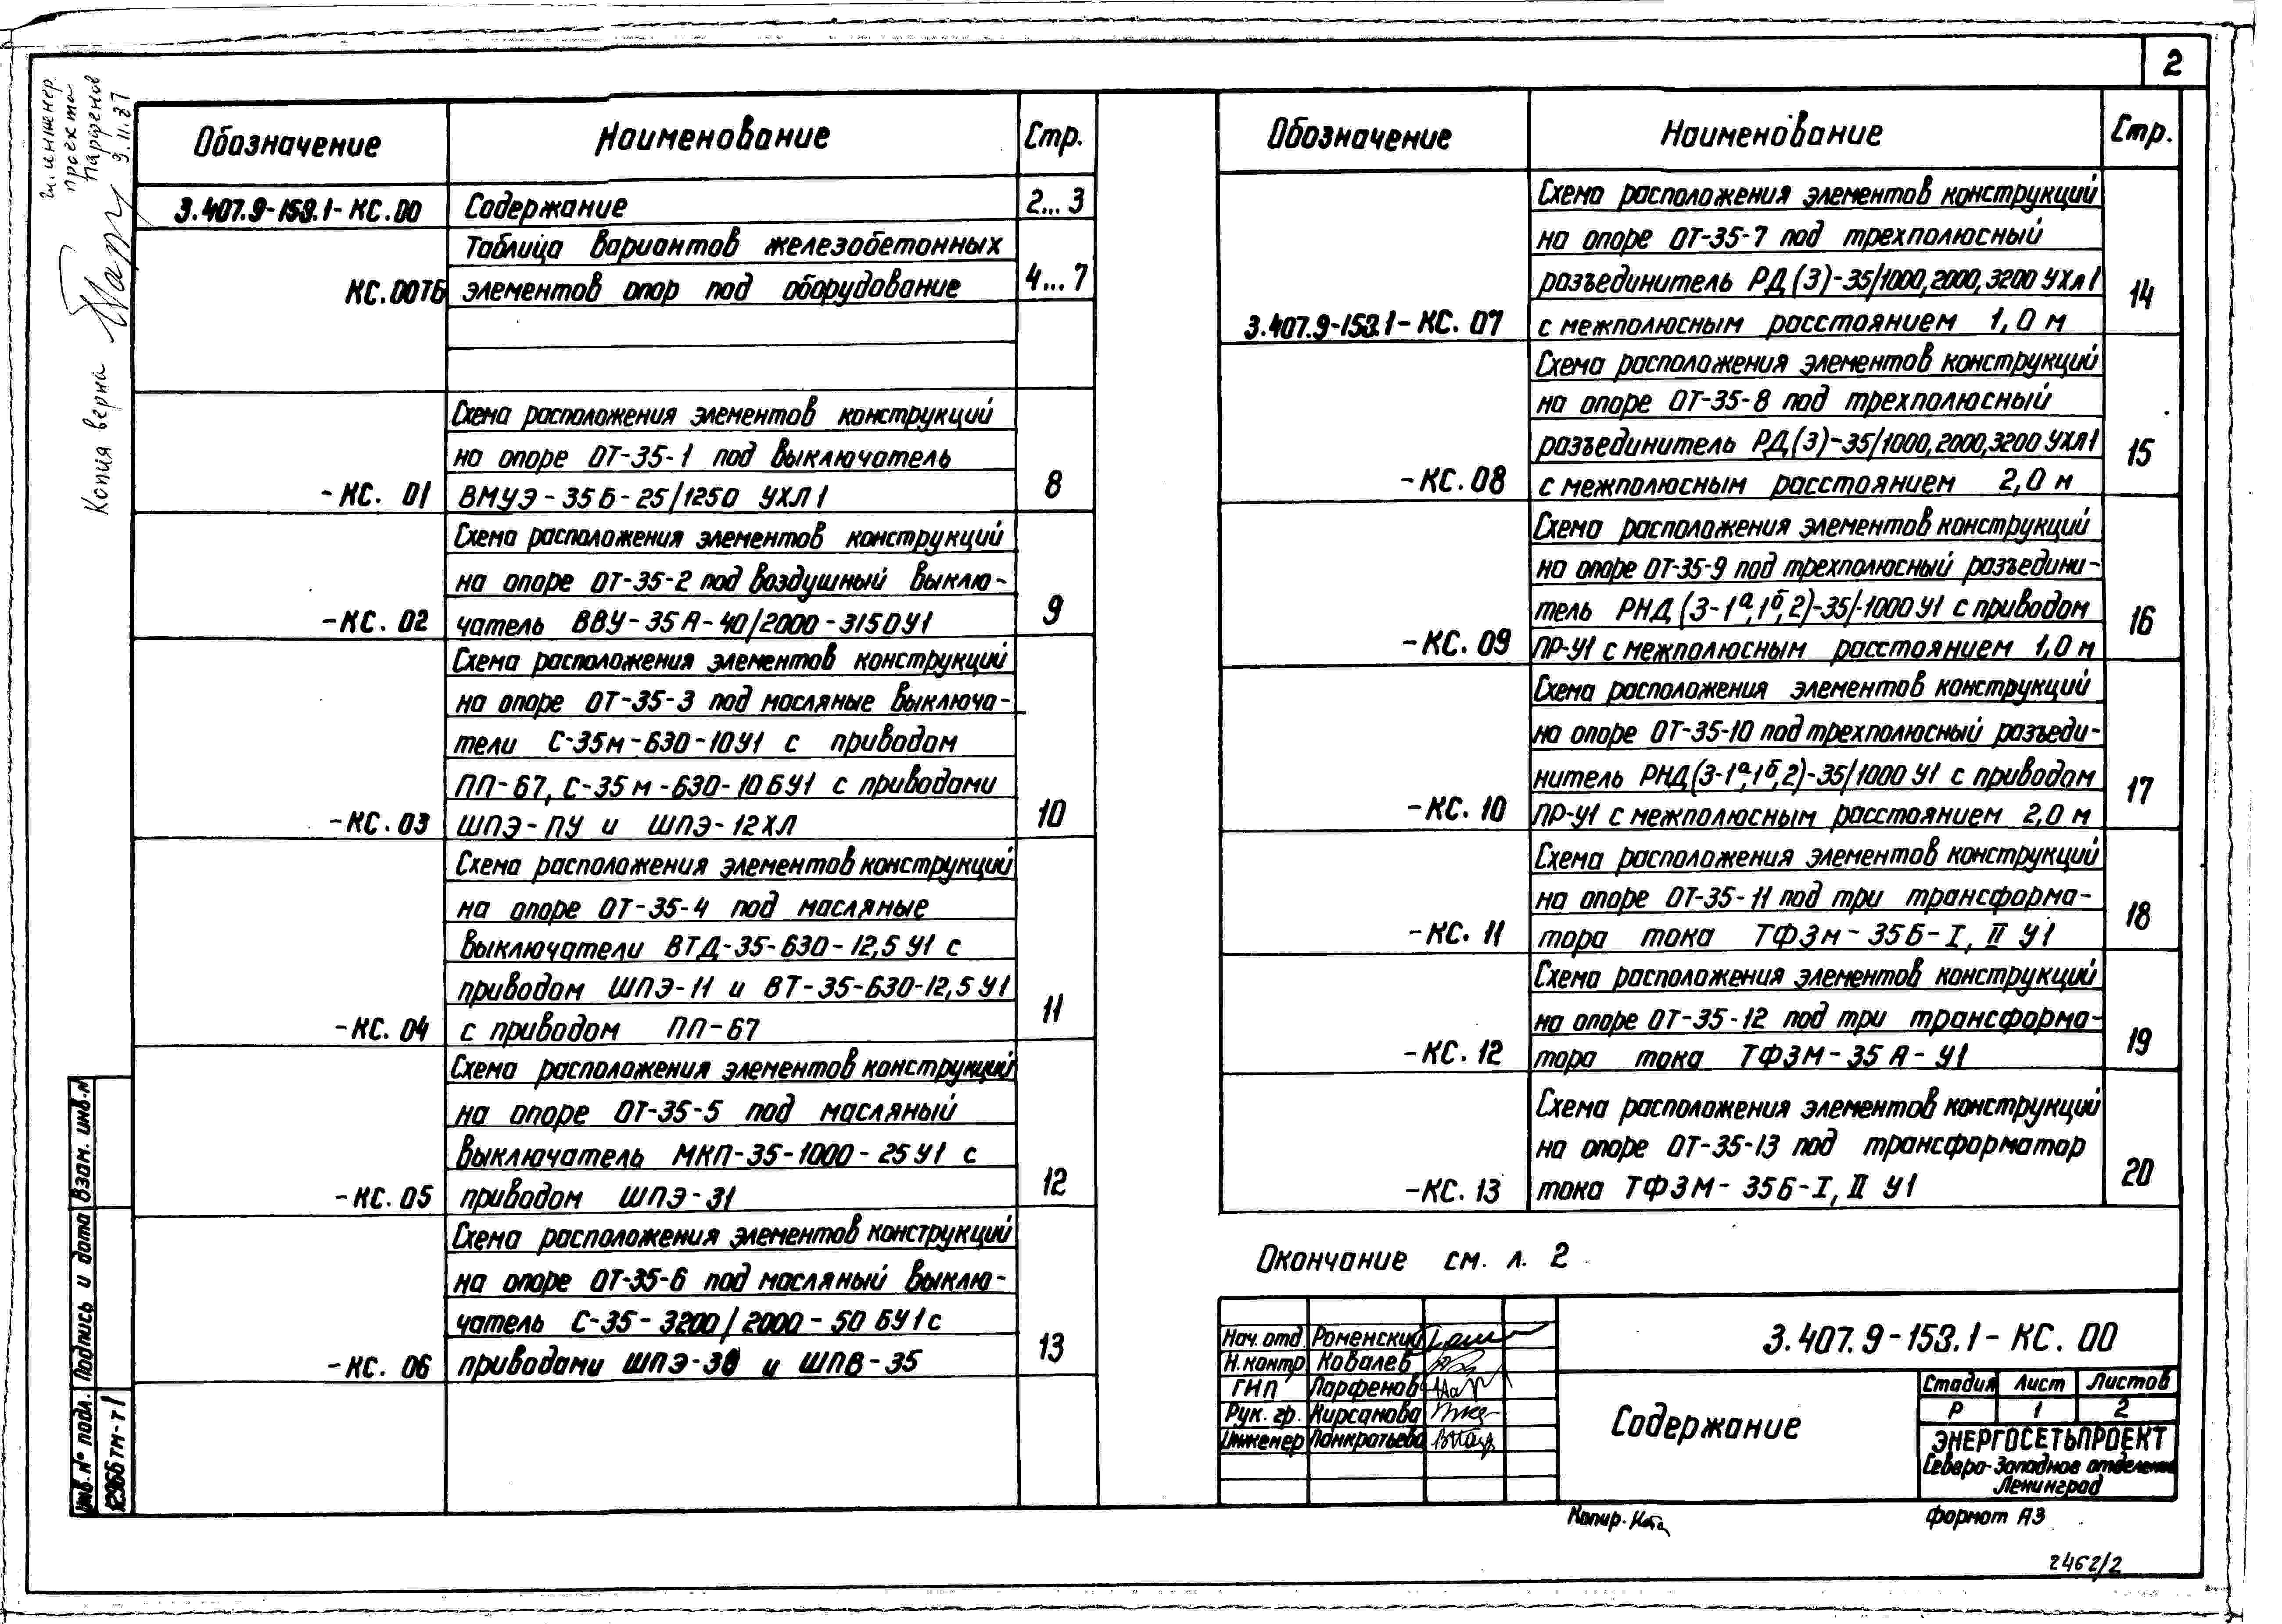 2
Гл. инженер
проекта
Парфенов
9.11.87
Копия верна
Обозначение Наименование Стр.
3.407.9-153.1-КС.00 Содержание 2...3
Таблица вариантов железобетонных
КС.00ТБ элементов опор под оборудование 4...7
Схема расположения элементов конструкций
на опоре ОТ-35-1 под выключатель
-КС. 01 ВМУЭ-35Б-25/1250 УХЛ1 8
Схема расположения элементов конструкций
на опоре ОТ-35-2 под воздушный выклю-
-КС. 02 чатель ВВУ-35А-40/2000-3150У1 9
Схема расположения элементов конструкций
на опоре ОТ-35-3 под масляные выключа-
тели С-35м-630-10У1 с приводом
ПП-67, С-35м-630-10БУ1 с приводами
-КС. 03 ШПЭ-ПУ и ШПЭ-12ХЛ 10
Схема расположения элементов конструкций
на опоре ОТ-35-4 под масляные
выключатели ВТД-35-630-12,5У1 с
приводом ШПЭ-11 и ВТ-35-630-12,5У1
-КС. 04 с приводом ПП-67 11
Схема расположения элементов конструкций
на опоре ОТ-35-5 под масляный
выключатель МКП-35-1000-25У1 с
-КС. 05 приводом ШПЭ-31 12
Схема расположения элементов конструкций
на опоре ОТ-35-6 под масляный выклю-
чатель С-35-3200/2000-50БУ1 с
-КС. 06 приводами и ШПВ-35 13
Обозначение Наименование Стр.
Схема расположения элементов конструкций
на опоре ОТ-35-7 под трехполюсный
разъединитель РД(З)-35/1000,2000,3200УХЛ1
3.407.9-153.1-КС. 07 с межполюсным расстоянием 1,0 м 14
Схема расположения элементов конструкций
на опоре ОТ-35-8 под трехполюсный
разъединитель РД(З)-35/1000,2000,3200УХЛ1
-КС. 08 с межполюсным расстоянием 2,0 м 15
Схема расположения элементов конструкций
на опоре ОТ-35-9 под трехполюсный разъедини-
тель РНД(З-1а,1б,2)-35/-1000У1 с приводом
-КС. 09 ПР-У1 с межполюсным расстоянием 1,0 м 16
Схема расположения элементов конструкций
на опоре ОТ-35-10 под трехполюсный разъеди-
нитель РНД(З-1а,1б,2)-35/1000У1 с приводом
-КС. 10 ПР-У1 с межполюсным расстоянием 2,0 м 17
Схема расположения элементов конструкций
на опоре ОТ-35-11 под три трансформа-
-КС. 11 тора тока ТФЗм-35Б-I, II У1 18
Схема расположения элементов конструкций
на опоре ОТ-35-12 под три трансформа-
-КС. 12 тора тока ТФЗМ-35А-У1 19
Схема расположения элементов конструкций
на опоре ОТ-35-13 под трансформатор
-КС. 13 тока ТФЗМ-35Б-I, II У1 20
Окончание см. л. 2
Нач. отд Роменский
Н.контр Ковалев
ГИП Парфенов
Рук. гр. Кирсанова
Инженер Панкратьева
3.407.9-153.1-КС. 00
Содержание
Стадия Лист Листов
Р 1 2
ЭНЕРГОСЕТЬПРОЕКТ
Северо-Западное отделение
Ленинград
Копир.
Формат А3
2462/2
Взам. инв.№
Подпись и дата
Инв. № подл.
12966тм-т1